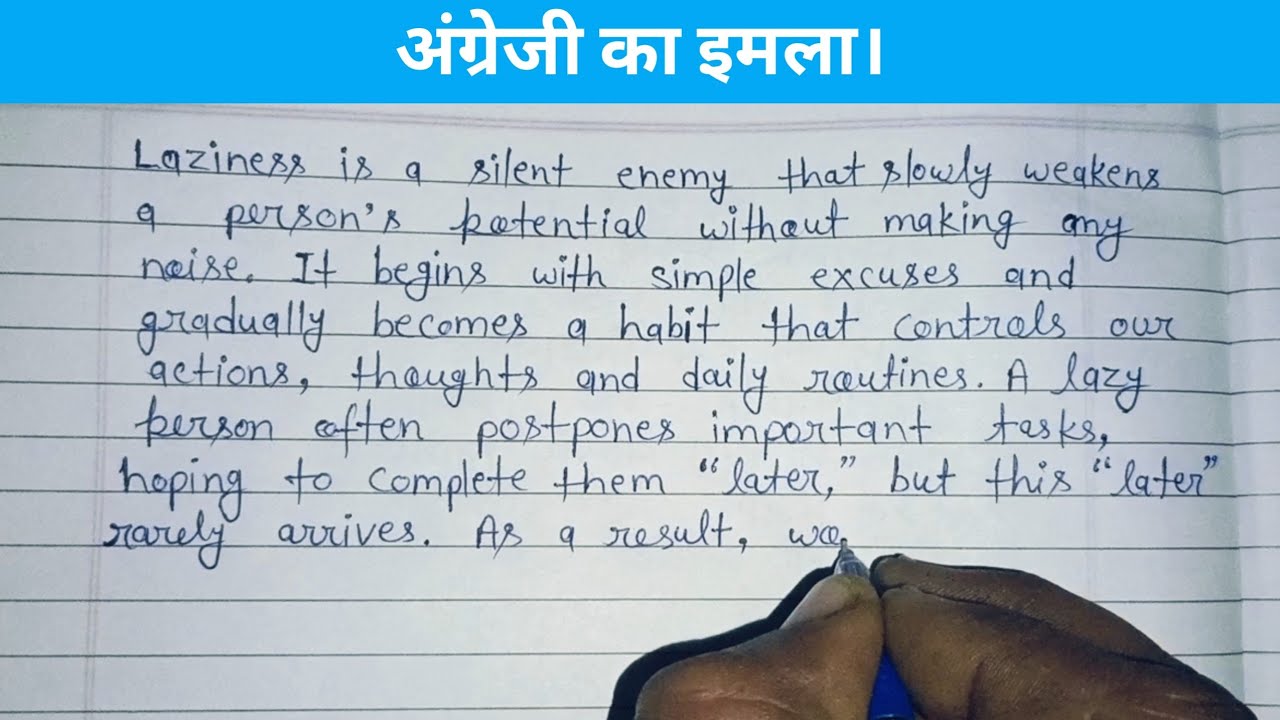 अंग्रेजी का इमला।
Laziness is a silent enemy that slowly weakens
a person's potential without making any
noise. It begins with simple excuses and
gradually becomes a habit that controls our
actions, thoughts and daily routines. A lazy
person often postpones important tasks,
hoping to complete them “later,” but this “later”
rarely arrives. As a result,